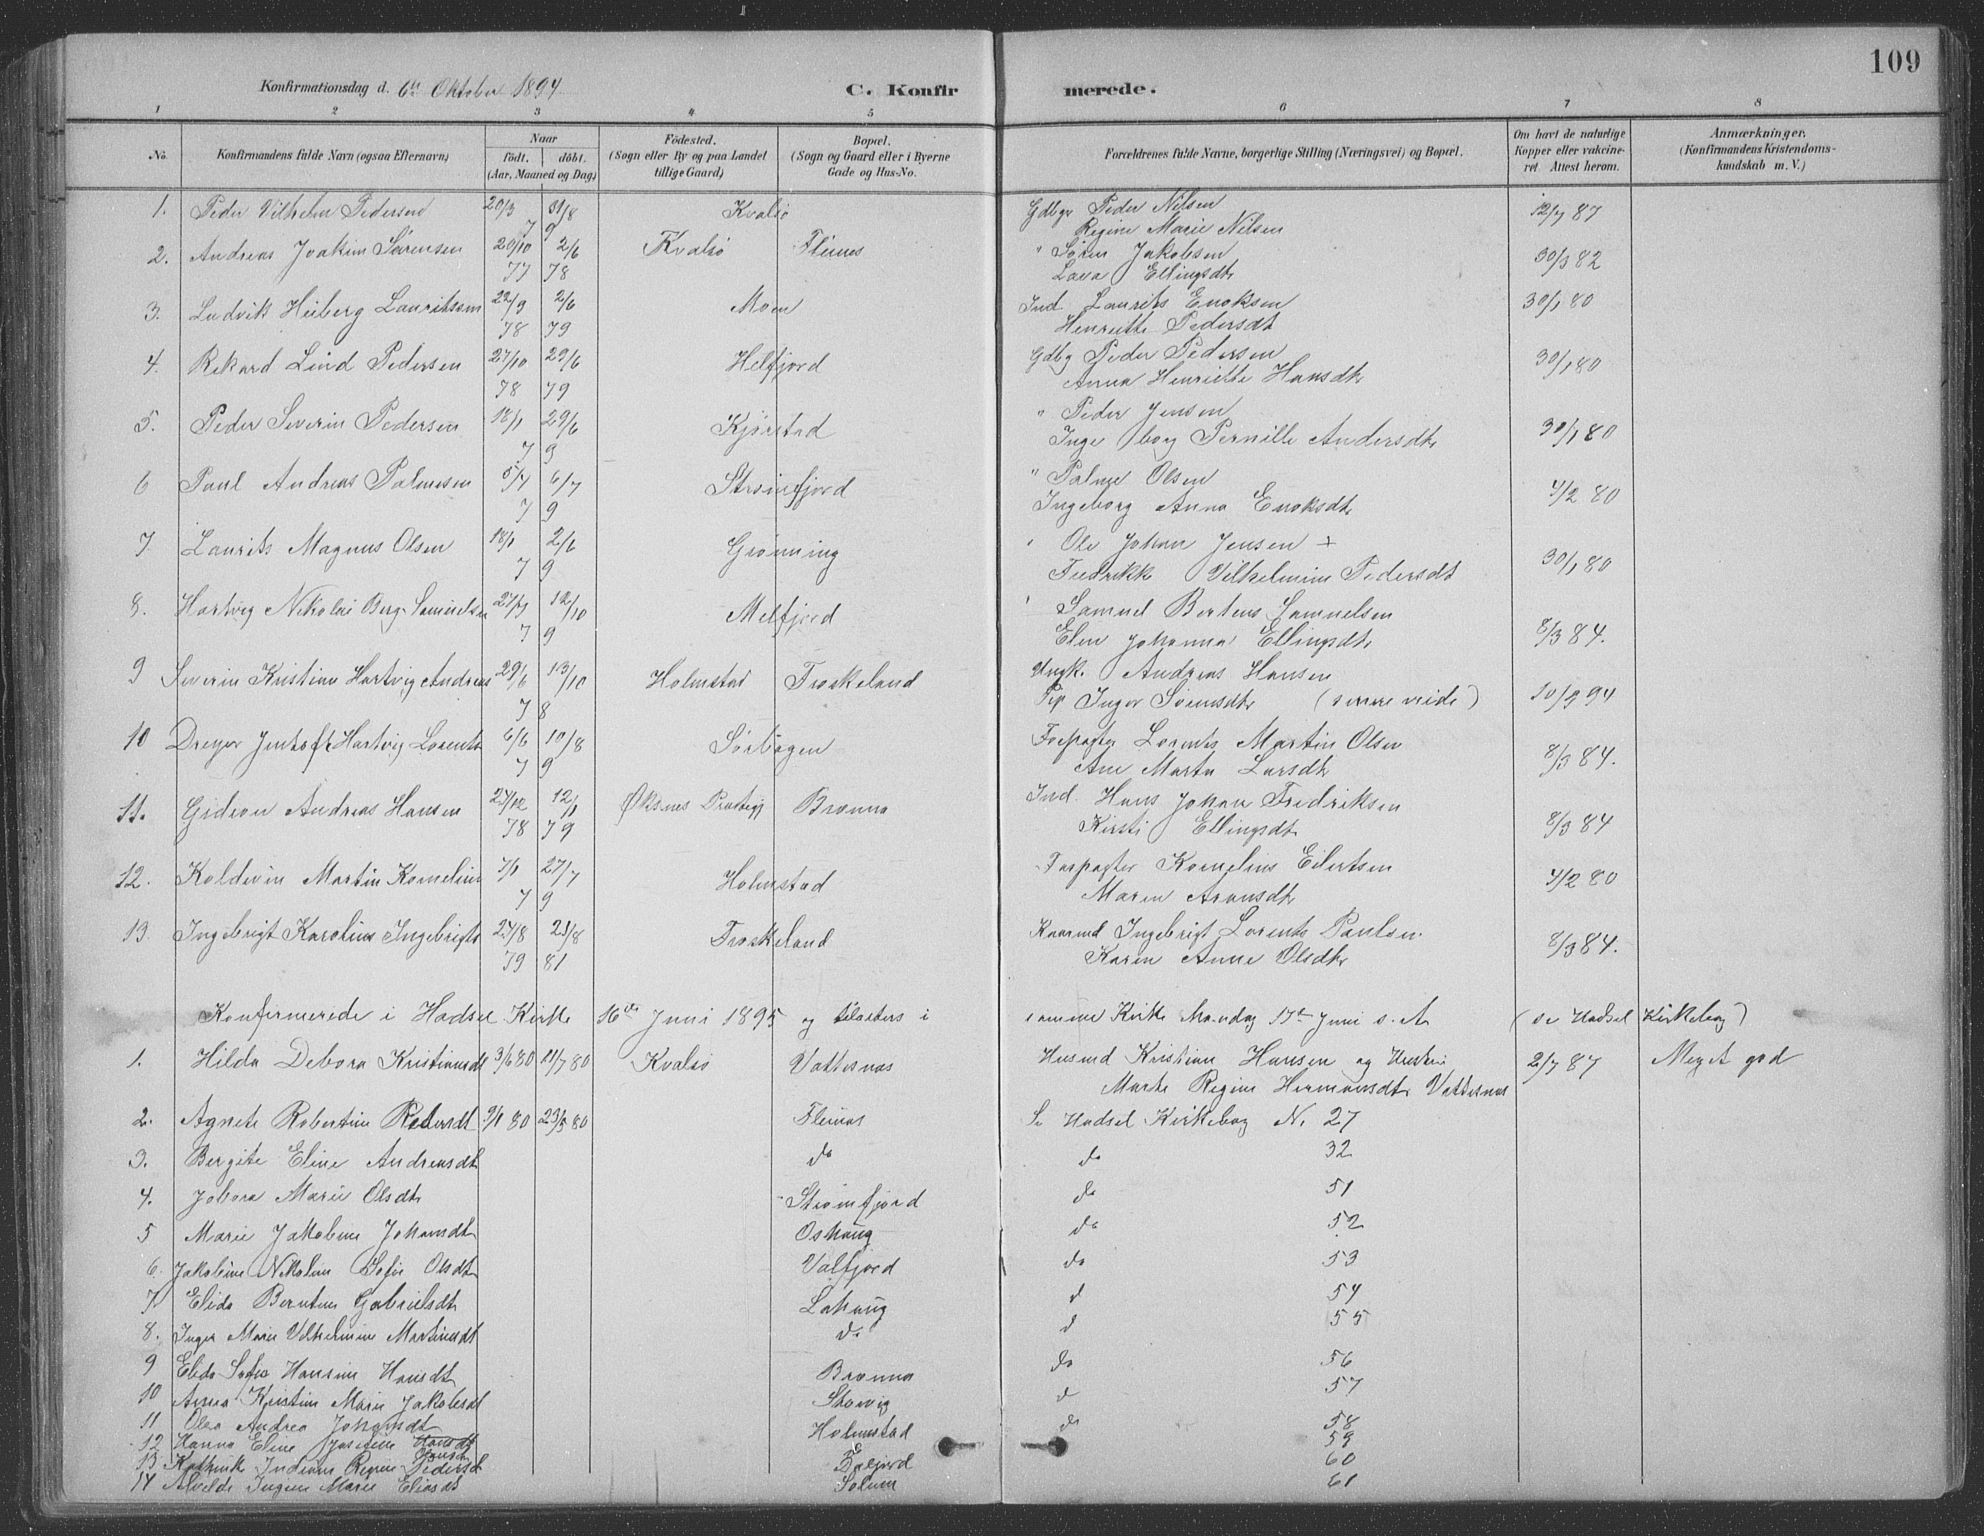 109
Konfirmationsdag d. 6te Oktober 1894
C. Konfirmerede.
1 2 3 4 5 6 7 8
No. Konfirmandens fulde Navn (ogsaa Efternavn) Naar födt. döbt. (Aar, Maaned og Dag) Födested. (Sogn eller By og paa Landet tillige Gaard) Bopæl. (Sogn og Gaard eller i Byerne Gade og Hus-No. Forældrenes fulde Navne, borgerlige Stilling (Næringsvei) og Bopæl. Om havt de naturlige Kopper eller vakcineret. Attest herom. Anmærkninger. (Konfirmandens Kristendomskundskab m. V.)
1. Peder Vilhelm Pedersen 20/3 31/8 79 Kvalsø Gdbgr Peder Nilsen 12/7 87
Regine Marie Nilsen
2. Andreas Joakim Sørensen 20/10 77 2/6 78 Kvalsø Fleines " Søren Jakobsen 30/3 82
Lava Ellingsdt
3. Ludvik Heiberg Lauritssen 22/9 78 2/6 79 Moen Ind. Laurits Enoksen 30/1 80
Henriette Pedersdt
4. Rikard Lind Pedersen 27/10 78 29/6 79 Melfjord Gdbg Peder Pedersen 30/1 80
Anna Henriette Hansdt
5. Peder Severin Pedersen 18/1 29/6 79 Kjørstad " Peder Jensen 30/1 80
Ingeborg Pernille Andersdt
6 Paul Andreas Palmesen 5/4 6/7 79 Strømfjord " Palme Olsen 4/2 80
Ingeborg Anna Enoksdt
7. Laurits Magnus Olsen 18/1 2/6 79 Grønning " Ole Johan Jensen + 30/1 80
Fredrikk Vilhelmine Pedersdt
8. Hartvig Nikolai Berg Samuelsen 27/7 12/10 79 Melfjord " Samuel Bertens Samuelsen 8/3 84.
Elen Johanna Ellingsdt
9 Severin Kristian Hartvig Andreas 29/6 13/10 78 Holmstad Froskeland Ungk. Andreas Hansen 10/9 94
Pig Inger Sivertsdt
10 Dreyer Jentoft Hartvig Lorents 6/6 10/8 79 Sørbogen Forpagter Lorents Martin Olsen 8/3 84.
Ane Marta Larsdt
11. Gideon Andreas Hansen 27/12 78 12/1 79 Øksnes Præstegj Brønna Ind. Hans Johan Fredriksen 8/3 84
Kirsti Ellingsdt
12. Koldevin Martin Kornelius 7/1 27/7 79 Holmstad Forpagter Kornelius Eilertsen 4/2 80
Maren Aronsdt
13. Ingebrigt Karolius Ingebrigts 27/8 79 21/8 81 Froskeland Kaarmd Ingebrigt Lorents Paulsen 8/3 84.
Karen Anne Olsdt
Konfirmerede i Hadsel Kirke 16de Juni 1895 og tilalters i samme Kirke Mandag 17de Juni s. A (se Hadsel Kirkebog)
1. Hilda Debora Kristiansdt 3/6 80 11/7 80 Kvalsø Vattesnas Husmd Kristian Hansen og Hustru 2/7 87 Meget god
Marte Regine Hermansdt Vottesnas
2. Agnete Robertine Pedersdt 9/1 80 23/5 80 Fleines Se Hadsel Kirkebog N. 27
3. Bergite Eline Andreasdt do do 32
4. Jobora Marie Olsdt Strømfjord do 51
5 Marie Jakobine Johansdt Oshaug do 52
6. Jakobine Nikoline Sofie Olsdt Valfjord do 53
7. Elida Berntine Gabrielsdt Lahaug d 54
8. Inger Marie Vilhelmine Martinsdt do d 55
9 Elida Sofie Hansine Hansdt Brønna do 56
10 Anna Kristine Marie Jakobsdt Skovig d 57
11 Olea Andrea Johansdt Holmstad do 58
12 Hanna Eline Josefine Hansdt 59
13 Kathinka Indiane Regine Pedersdt Eidfjord 60
14 Alvilde Ingine Marie Eliasdt Solum 61